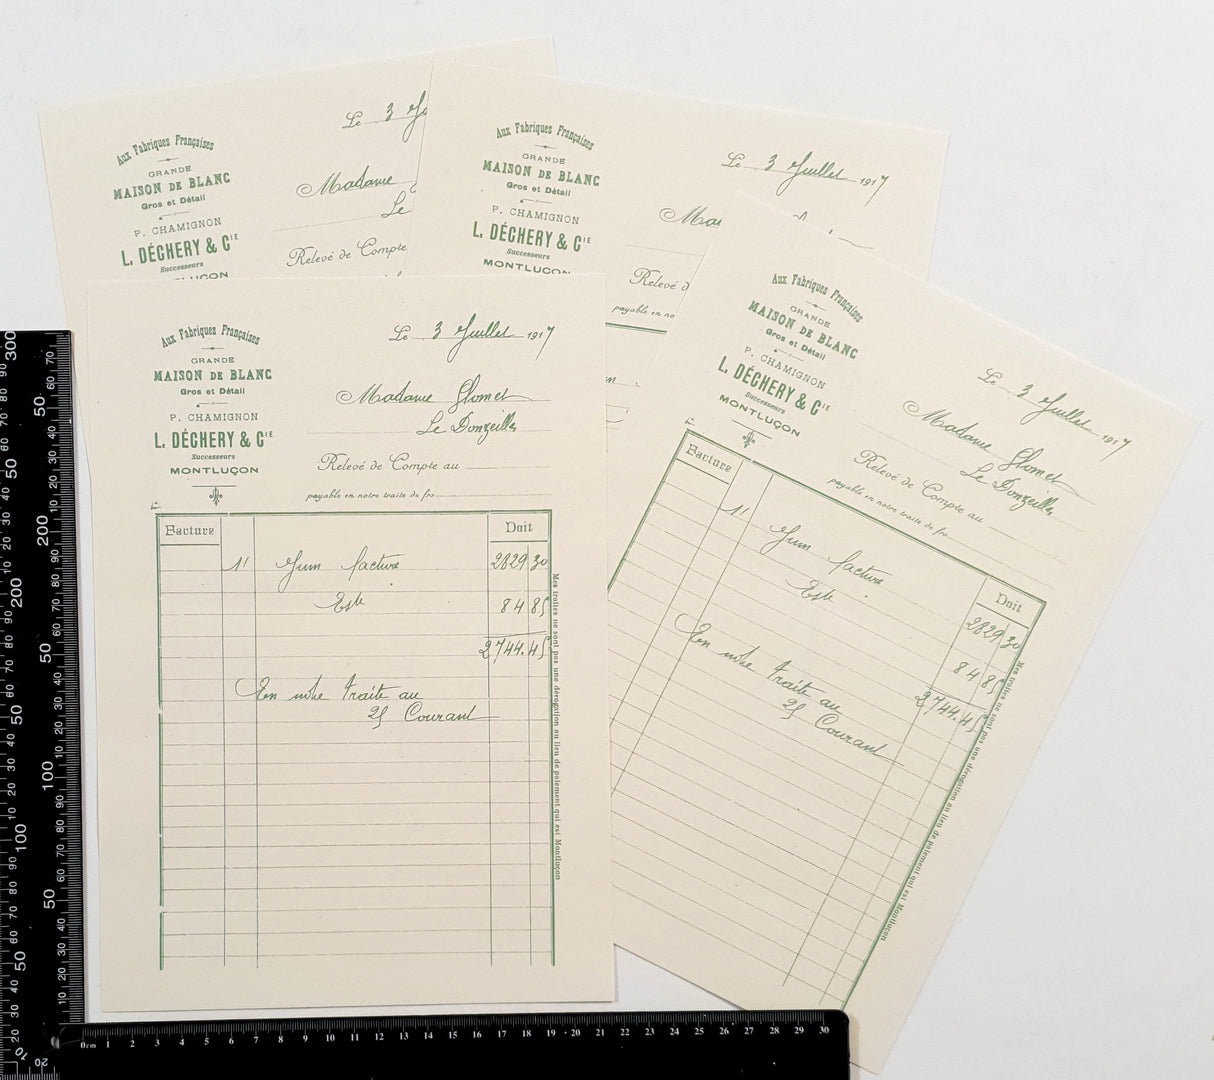 Aux Fabriques Françaises
GRANDE
MAISON DE BLANC
Gros et Détail
P. CHAMIGNON
L. DÉCHERY & Cie
Successeurs
Le 3
Madame
Le
Relevé de Compte
Aux Fabriques Françaises
GRANDE
MAISON DE BLANC
Gros et Détail
P. CHAMIGNON
L. DÉCHERY & CIE
Successeurs
MONTLUÇON
Le 3 Juillet 1917
Relevé d
payable en no
Aux Fabriques Françaises
GRANDE
MAISON DE BLANC
Gros et Détail
P. CHAMIGNON
L. DÉCHERY & CIE
Successeurs
MONTLUÇON
Le 3 Juillet 1917
Madame
Le Donzeilles
Relevé de Compte au
payable en notre traite de frs
Facture Doit
11 Juin facture 2829 30
Este 84 85
2744.45
En notre traite au
25 Courant
Mes traites ne sont pas une dérogation au lieu de paiement qui est Montluçon
Aux Fabriques Françaises
GRANDE
MAISON DE BLANC
Gros et Détail
P. CHAMIGNON
L. DÉCHERY & CIE
Successeurs
MONTLUÇON
Le 3 Juillet 1917
Madame
Le Donzeilles
Relevé de Compte au
payable en notre traite de frs
Facture Doit
11 Juin facture 2829 30
Este 84 85
2744.45
En notre traite au
25 Courant
Mes traites ne sont pas une dérogation au lieu de paiement qui est Montluçon
0cm 1 2 3 4 5 6 7 8 9 10 11 12 13 14 15 16 17 18 19 20 21 22 23 24 25 26 27 28 29 30